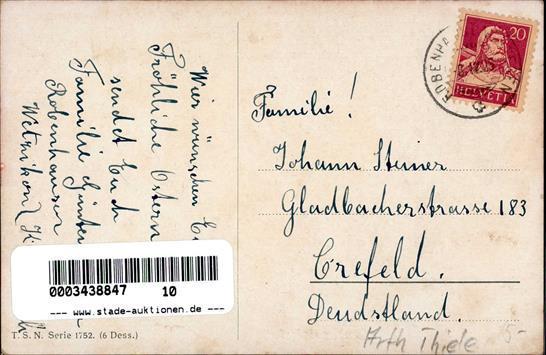 Wier wünschen Eu
Fröhliche Ostern
sendet Euch
Familie Günter
Robenhausen
Wetzikon
Familie!
Johann Steiner
Gladbacherstrasse 183
Crefeld.
Deudstland.
20
HELVETIA
ROBENHA
0003438847 10
--- www.stade-auktionen.de ---
T. S. N. Serie 1752. (6 Dess.)
Arth Thiele
5-